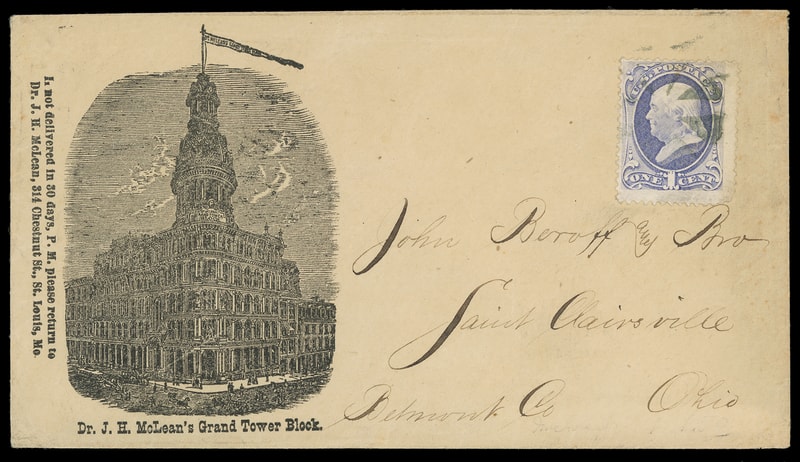 If not delivered in 30 days, P. M. please return to
Dr. J. H. McLean, 314 Chestnut St., St. Louis, Mo
Dr. J. H. McLean's Grand Tower Block.
ONE CENT
1
John Beroff & Bro
Saint Clairsville
Belmont Co Ohio